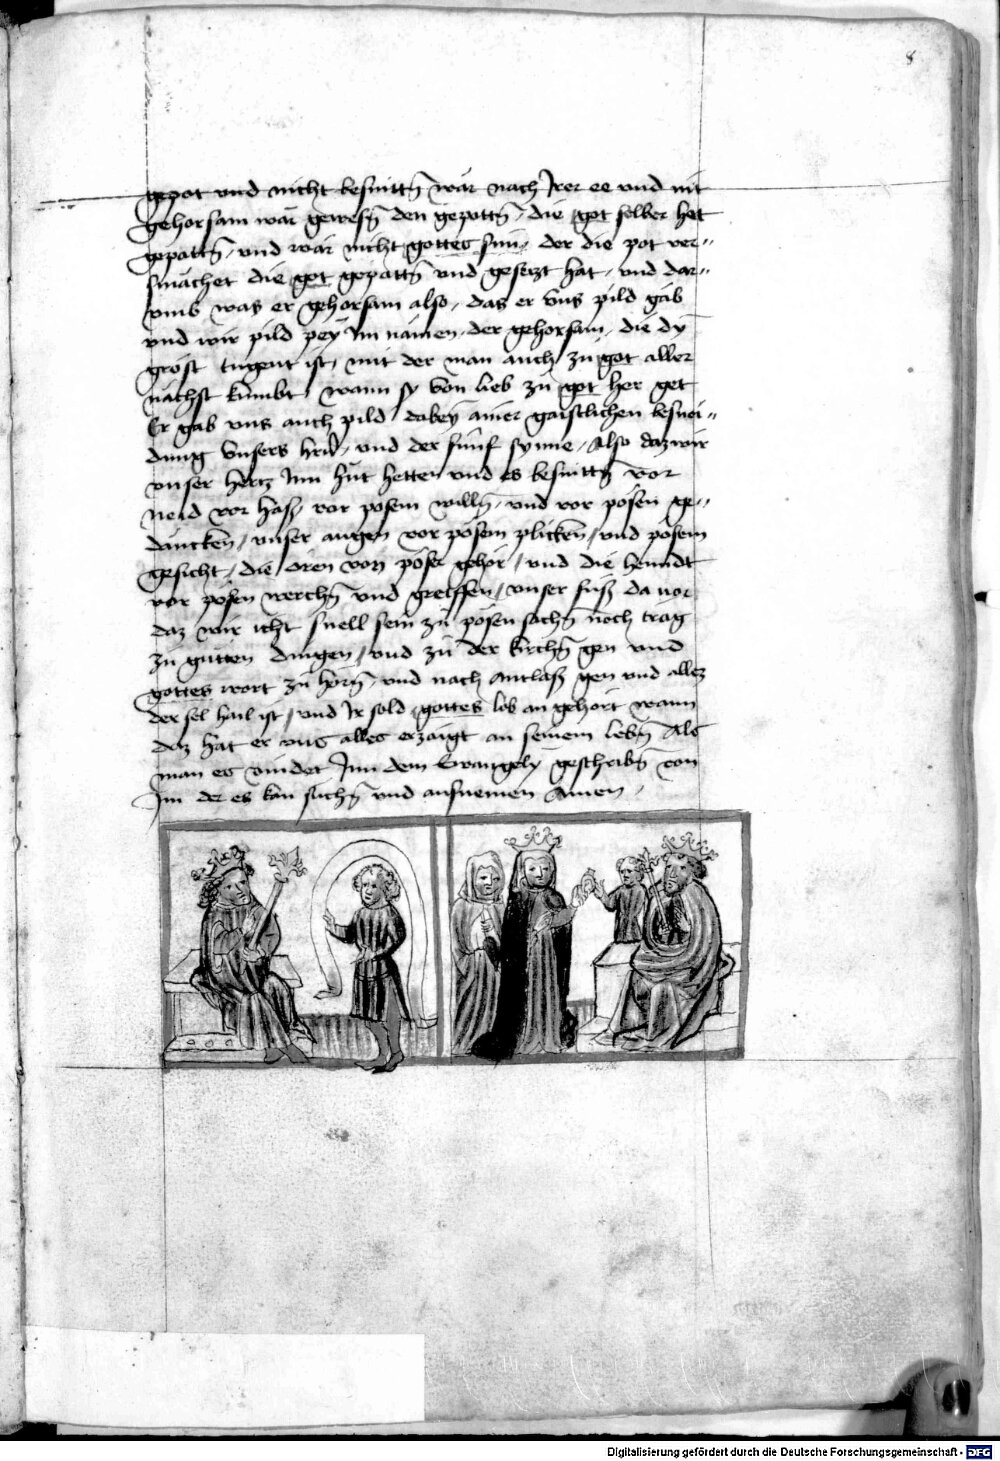 8
gepot und nicht besnittn̄ wär nach Irer ee und nit
gehorsam wär gewesn̄ den gepottn̄, die got selber het
gepottn̄, und wär nicht gottes sun, der die pot ver-
smächet die got gepottn̄ und gesetzt hat, und dar-
umb was er gehorsam also, das er uns pild gäb
und wir pild pey Im nämen, der gehorsam, die dy
gröst tugent ist, mit der man auch zu got aller
nächst kumbt, wann sy von lieb zu got her get
Er gab uns auch pild dabey ainer gaistlichen besnei-
dung unsers und der fünf synne, Also daz wir
unser hertz Inn hut hetten und es besnittn̄ vor
neid vor hasz, vor posem willn̄, und vor posen ge-
dancken, unser augen vor pösem plicken, und pösem
gesicht, die oren von pöser gehör, und die henndt
vor pösen werchn̄ und greiffen, unser füsz da vor
daz wir icht snell sein zu pösen sachn̄ noch träg
zu gutten dingen, und zu der kirchn̄ gen und
gottes wort zu hörn̄, und nach antlasz gen und allez
der sel hail ist, und Ir sold gottes lob an gehört wann
daz hat er uns alles erzaigt an seinem lebn̄ Als
man es vindet Inn dem Ewangely geschribn̄ von
Im der es kan suchn̄ und aufnemen Amen,
Digitalisierung gefördert durch die Deutsche Forschungsgemeinschaft - DFG